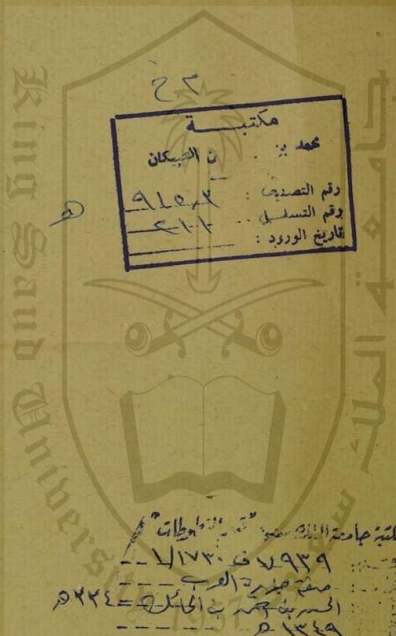 ٢ خ
مكتبـــــة
محمد بن ... ن العبيكان
رقم التصنيف : ٩١٥٫٣
رقم التسلسل : ٢١٠١
تاريخ الورود :
هـ
King Saud University
جامعة الملك سعود
1957
مكتبة جامعة الملك سعود "قسم المخطوطات"
٧٩٣٩ ف ١٧٣٠/١
صفة جزيرة العرب
الحسن بن أحمد بن الحائك - ٣٣٤هـ
١٣٤٩هـ